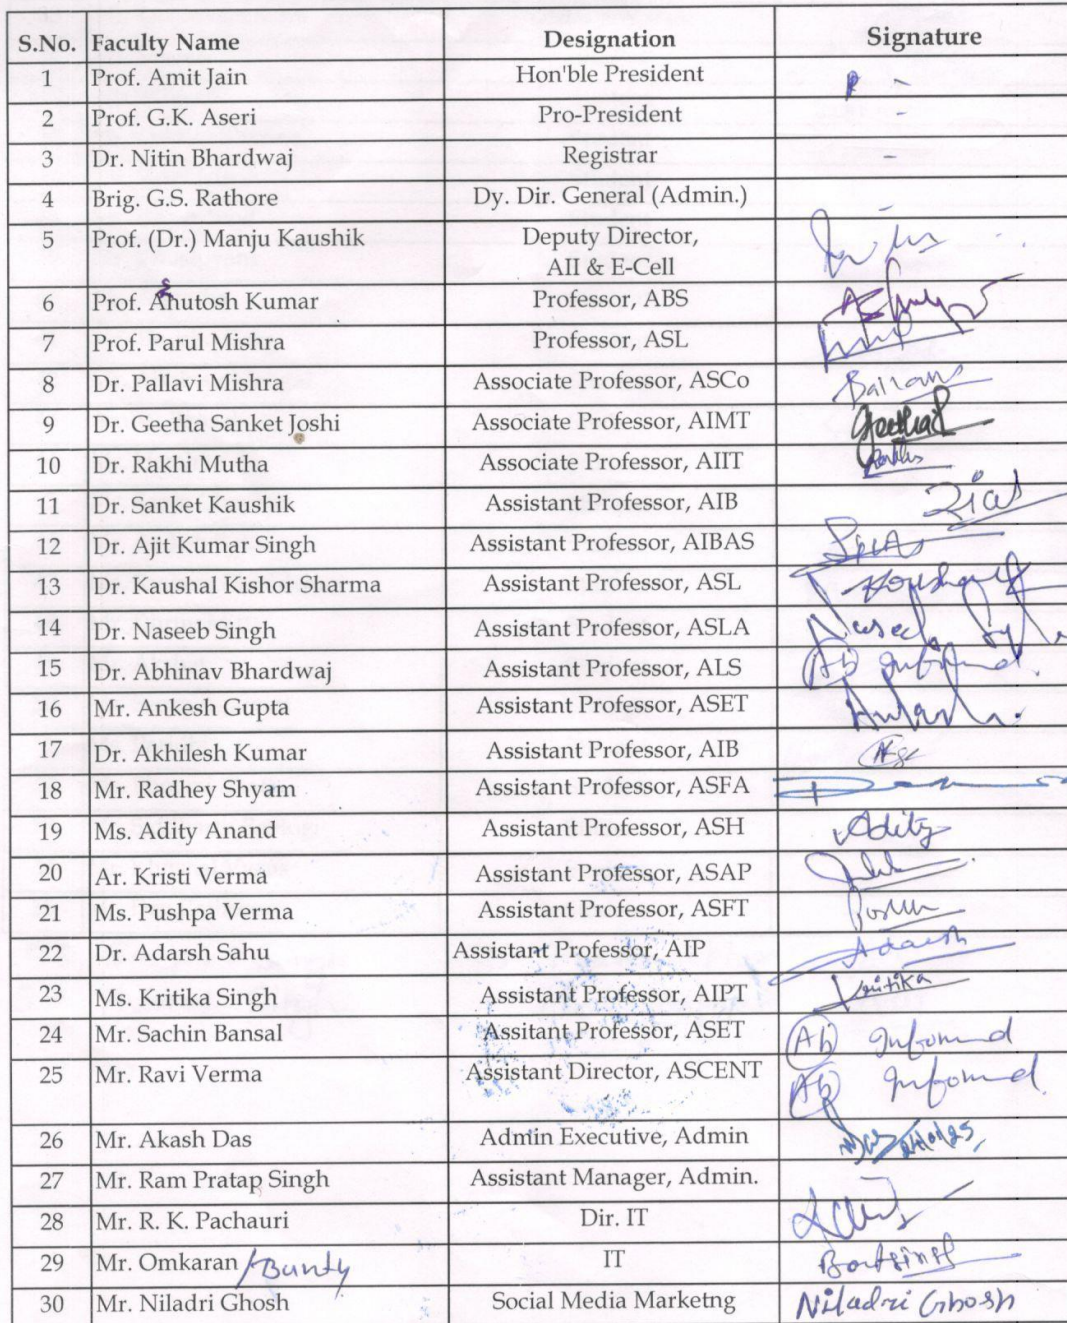 S.No. Faculty Name Designation Signature
1 Prof. Amit Jain Hon'ble President -
2 Prof. G.K. Aseri Pro-President -
3 Dr. Nitin Bhardwaj Registrar -
4 Brig. G.S. Rathore Dy. Dir. General (Admin.) -
5 Prof. (Dr.) Manju Kaushik Deputy Director,
AII & E-Cell
6 Prof. Ahutosh Kumar Professor, ABS
7 Prof. Parul Mishra Professor, ASL
8 Dr. Pallavi Mishra Associate Professor, ASCo
9 Dr. Geetha Sanket Joshi Associate Professor, AIMT
10 Dr. Rakhi Mutha Associate Professor, AIIT
11 Dr. Sanket Kaushik Assistant Professor, AIB
12 Dr. Ajit Kumar Singh Assistant Professor, AIBAS
13 Dr. Kaushal Kishor Sharma Assistant Professor, ASL
14 Dr. Naseeb Singh Assistant Professor, ASLA
15 Dr. Abhinav Bhardwaj Assistant Professor, ALS Ab Informed
16 Mr. Ankesh Gupta Assistant Professor, ASET
17 Dr. Akhilesh Kumar Assistant Professor, AIB
18 Mr. Radhey Shyam Assistant Professor, ASFA
19 Ms. Adity Anand Assistant Professor, ASH Adity
20 Ar. Kristi Verma Assistant Professor, ASAP
21 Ms. Pushpa Verma Assistant Professor, ASFT
22 Dr. Adarsh Sahu Assistant Professor, AIP Adarsh
23 Ms. Kritika Singh Assistant Professor, AIPT Kritika
24 Mr. Sachin Bansal Assitant Professor, ASET Ab Informed
25 Mr. Ravi Verma Assistant Director, ASCENT Ab Informed
26 Mr. Akash Das Admin Executive, Admin
27 Mr. Ram Pratap Singh Assistant Manager, Admin.
28 Mr. R. K. Pachauri Dir. IT
29 Mr. Omkaran /Bunty IT
30 Mr. Niladri Ghosh Social Media Marketng Niladri Ghosh